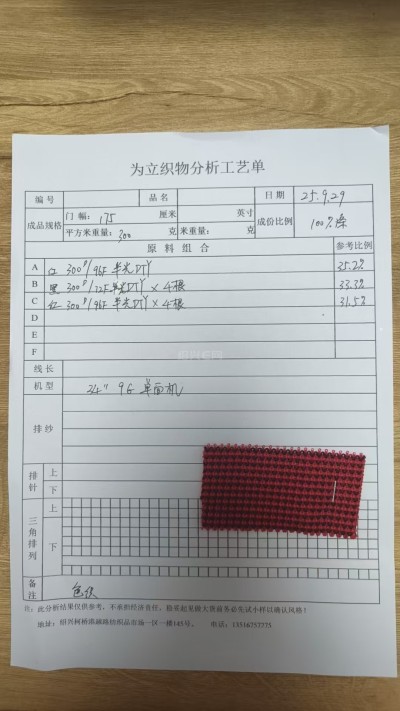 为立织物分析工艺单
编号 品名 日期 25.9.29
成品规格 门幅：175 厘米 英寸 成份比例 100%涤
平方米重量：300 克 米重量： 克
原料组合 参考比例
A 红 300D/96F 半光DTY 35.2%
B 黑 300D/72F半光DTY × 4根 33.3%
C 红 300D/96F 半光DTY × 4根 31.5%
D
E
F
线长
机型 34" 9G 单面机
排纱
排针 上
下
三角排列 上
下
备注 色织
注：此分析结果仅供参考，不承担经济责任，胚布批量做大货前务必先试小样以确认风格！
地址：绍兴柯桥港越路纺织品市场一区一楼145号。 电话：13516757775